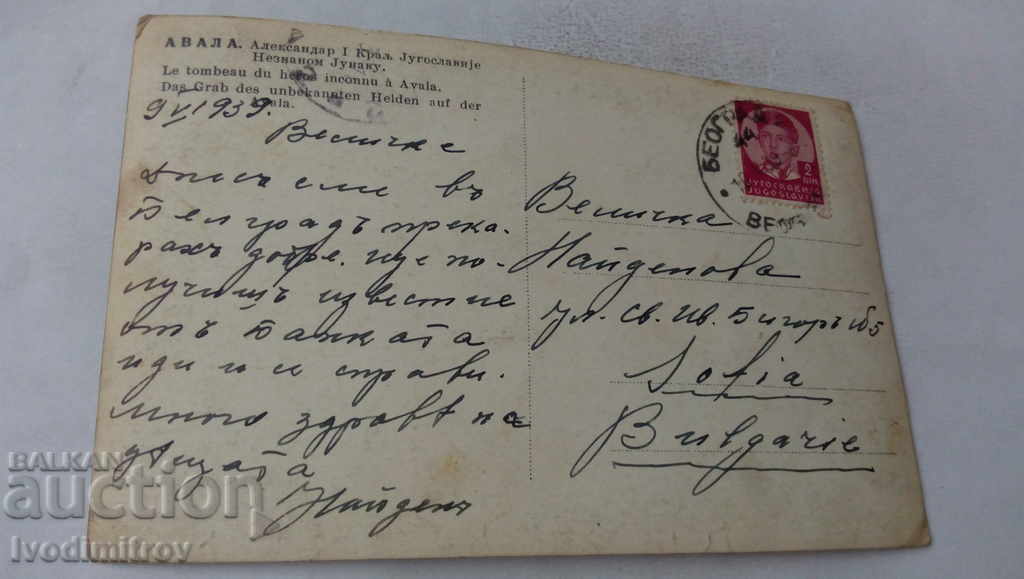 АВАЛА. Александар I Краљ Југославије
Незнаном Јунаку.
Le tombeau du héros inconnu à Avala.
Das Grab des unbekannten Helden auf der
Avala.
9 VI 1939.
Величке
Днесъ сме въ
Белградъ прека-
рахъ добре. ще по-
лучишъ известие
отъ Банката
иди и се справи.
много здраве на
децата
Найденъ
Величка
Найденова
ул. Св. Ив.
Sofia
Bulgarie
БЕОГРАД
2
DIN.
ЈУГОСЛАВИЈА
JUGOSLAVIJA
BALKAN
auction
Ivodimitrov